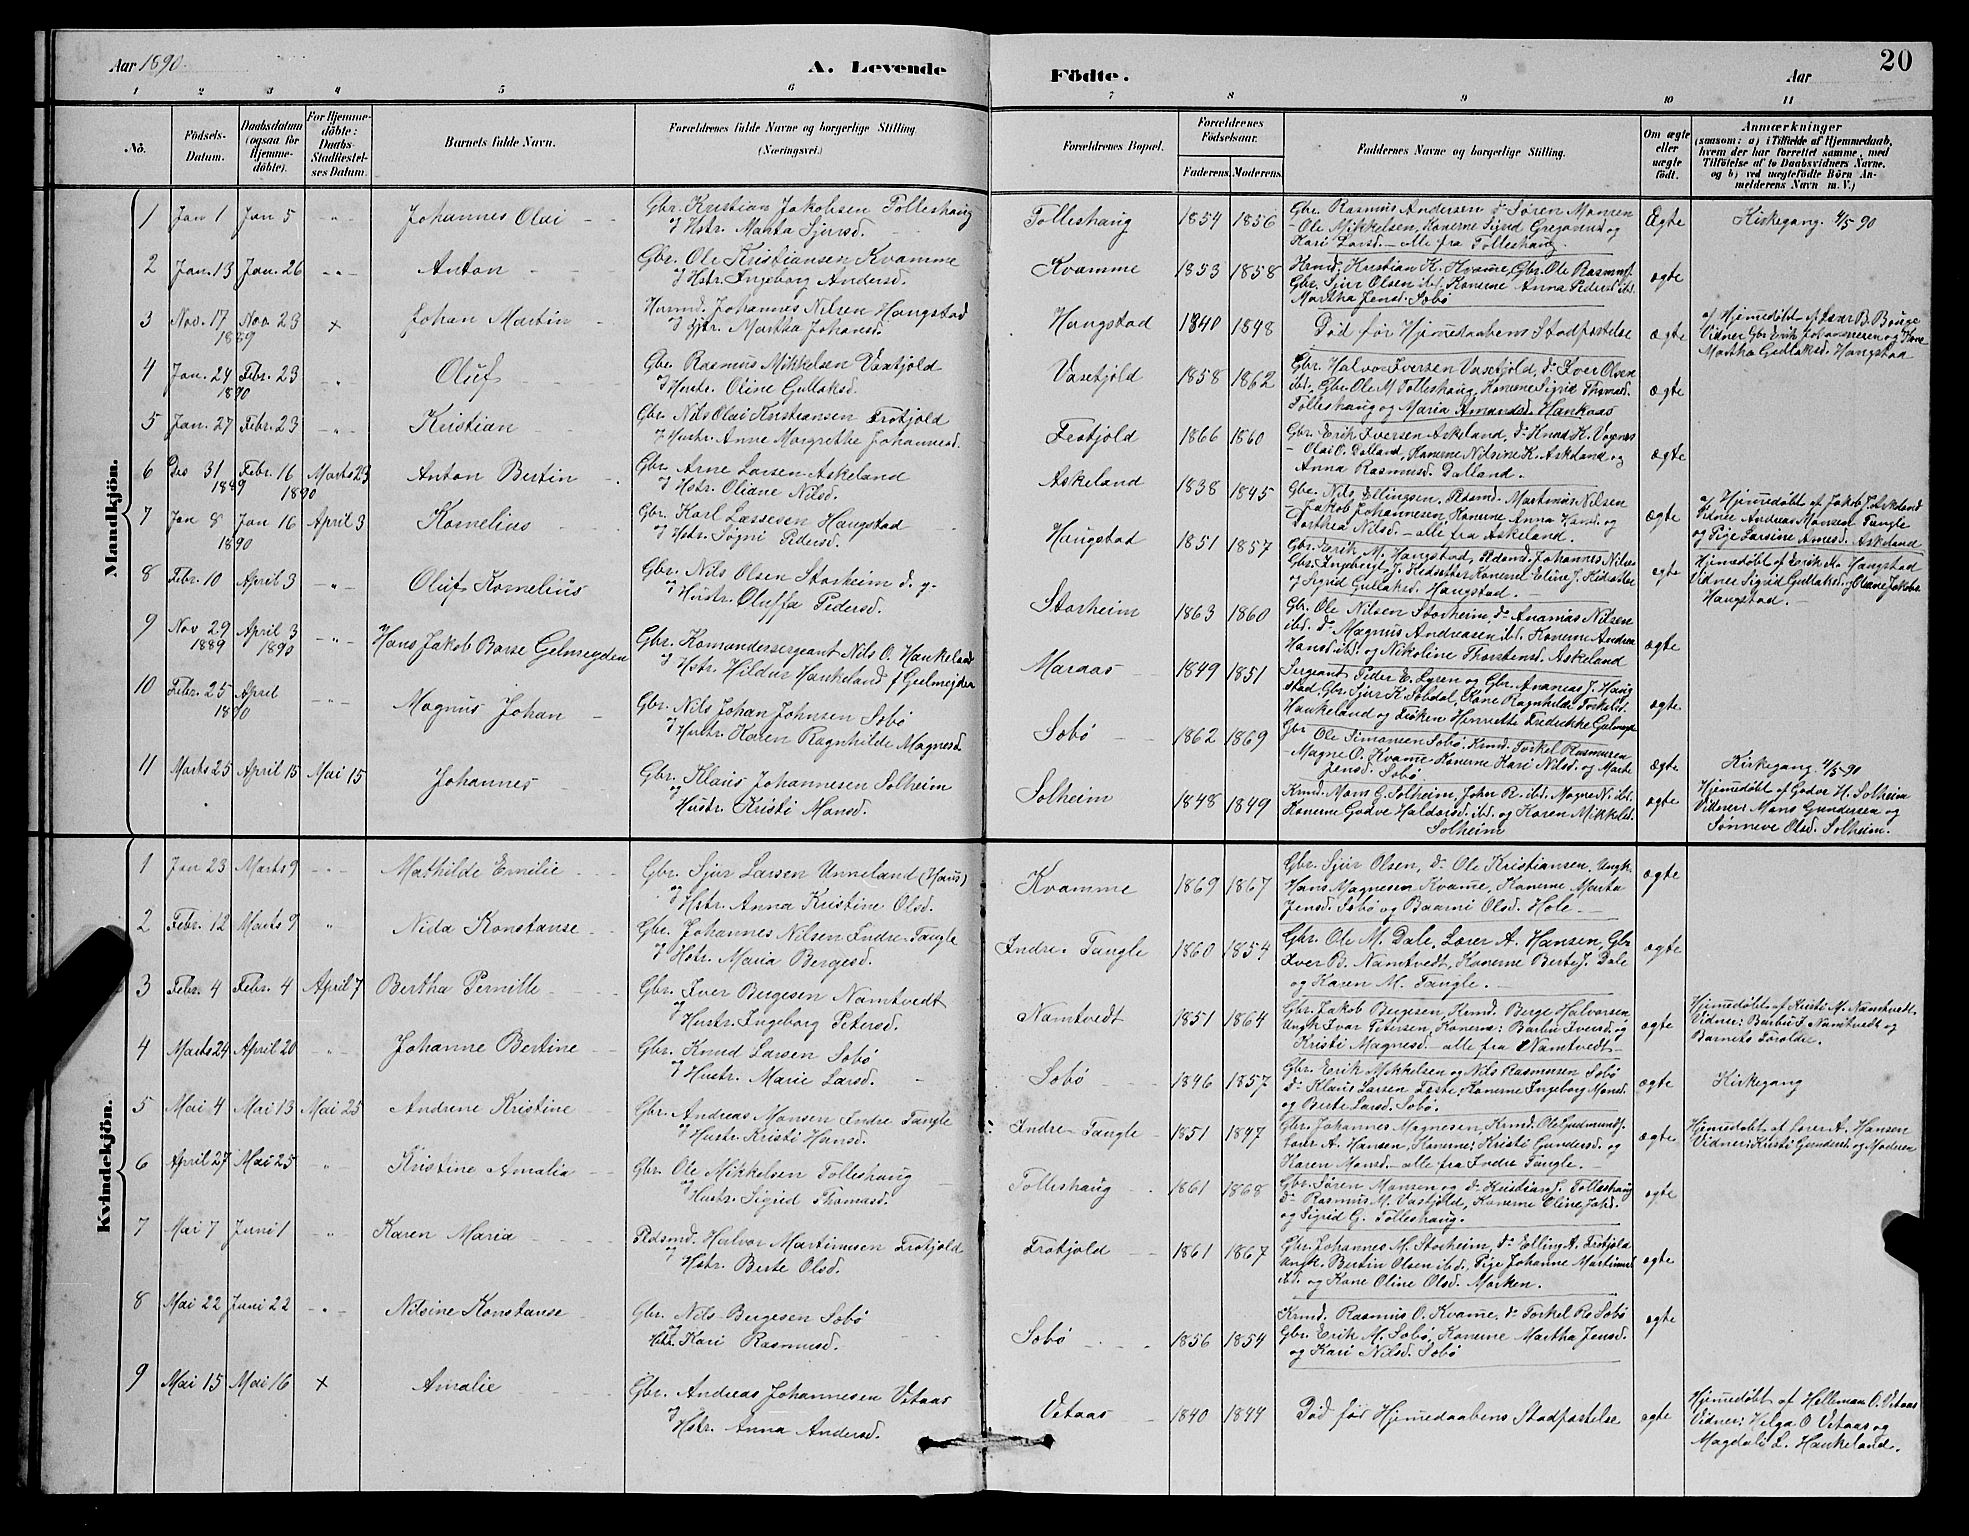 Aar 1890.
A. Levende
Födte.
Aar
20
1 2 3 4 5 6 7 8 9 10 11
Nö.
Födsels-Datum.
Daabsdatum (ogsaa for Hjemme-döbte).
For Hjemme-döbte: Daabs-Stadfæstel-ses Datum.
Barnets fulde Navn.
Forældrenes fulde Navne og borgerlige Stilling (Næringsvei.)
Forældrenes Bopæl.
Forældrenes Födselsaar.
Faderens. Moderens.
Faddernes Navne og borgerlige Stilling.
Om ægte eller uægte födt.
Anmærkninger
(saasom: a) i Tilfælde af Hjemmedaab, hvem der har forrettet samme, med Tilföielse af to Daabsvidners Navne, og b) ved uægtefödte Börn An-melderens Navn m. V.)
Mandkjön.
1 Jan 1 Jan 5 -"- Johannes Olai Gbr. Kristian Jakobsen Tolleshaug
og Hstr. Marta Sjursd. Tolleshaug 1854 1856 Gbr. Rasmus Andersen d° Søren Monsen
- Ole Mikkelsen, Konerne Sigrid Gregoriusd. og
Kari Larsd. - alle fra Tolleshaug. Ægte Kirkegang 4/5 90
2 Jan. 13 Jan. 26 -"- Anton Gbr. Ole Kristiansen Kvamme
og Hstr. Ingeborg Andersd. Kvamme 1853 1858 Krmd. Kristian K. Kvamme, Gbr. Ole Rasmuss.
Gbr. Sjur Olsen ibd. Konerne Anna Pedersd. ibd.
Martha Jensd. Sobö ægte
3 Nov. 17 1889 Nov. 23 x Johan Martin Husmd. Johannes Nilsen Hangstad
og Hstr. Martha Johansd. Hangstad 1840 1848 Död før Hjemedaabens Stadfæstelse ægte af Hjemedøbt af Lars B. Bouge
Vidner Gbr. Erik Johannesen og Kone
Martha Gullaksd. Hangstad
4 Jan. 24 1890 Febr. 23 -"- Oluf Gbr. Rasmus Mikkelsen Vaxtjold
og Hustr. Oline Gullaksd. Vasetjöld 1858 1862 Gbr. Halvor Iversen Vasetjöld, d° Iver Olsen
ibd. Gbr. Ole M Tolleshaug, Konerne Sigrid Thomasd.
Tolleshaug og Maria Amundsd. Hankaas ægte
5 Jan. 27 Febr. 23 -"- Kristian Gbr. Nils Olai Kristiansen Trotjold
og Hustr. Anne Margrethe Johannesd. Festjöld 1866 1860 Gbr. Erik Iversen Askeland, d° Knud K. Vognes
- Olai O. Dalland, Konerne Nilsine K. Askeland og
Anna Rasmusd. Dalland. ægte
6 Des 31 1889 Febr. 16 1890 Marts 23 Anton Bertin Gbr. Arne Larsen Askeland
og Hstr. Oliane Nilsd. Askeland 1838 1845 Gbr. Nils Ellingsen, Pdsmd. Martinus Nilsen
- Jakob Johannesen, Konerne Anna Hansd. og
Dorthea Nilsd. - alle fra Askeland. ægte af Hjemedøbt af Jakob J. Askeland
Vidner Andreas Monsen Tangle
og Pige Larsine Arnesd. Askeland
7 Jan 8 1890 Jan 16 April 3 Kornelius Gbr. Karl Lassesen Hangstad
og Hstr. Søgni Pedersd. Hangstad 1851 1857 Gbr. Erik M. Hangstad, Pldsmd. Johannes Nilsen
Gbr. Ingebrigt J. Hidsetter, Konerne Eline J. Hidsetter
og Sigrid Gullaksd. Hangstad. ægte Hjemedøbt af Erik M. Hangstad
Vidner Sigrid Gullaksd. og Oliane Jakobs.
Hangstad.
8 Febr. 10 April 3 -"- Oluf Kornelius Gbr. Nils Olsen Storheim d. y.
og Hustr. Oluffa Pedersd. Storheim 1863 1860 Gbr. Ole Nilsen Storheim, d° Ananias Nilsen
ibd. d° Magnus Andreasen ibd. Konerne Andrea
Hansd. ibd. og Nikoline Thorstensd. Askeland ægte
9 Nov 29 1889 April 3 1890 -"- Hans Jakob Borse Gelmeyden Gbr. Komandersergeant Nils O. Haukeland
og Hstr. Hildur Haukeland f. Geelmejden Maraas 1849 1851 Sergeant Peder E. Lyren og Gbr. Ananias J. Haug-
stad, Gbr. Sjur K. Sobdal, Kone Ragnhilde Torkelsd.
Haukeland og Frøken Henriette Fredrikke Gelmeyd. ægte
10 Febr. 25 1890 April -"- Magnus Johan Gbr. Nils Johan Johnsen Sobö
og Hustr. Karen Ragnhilde Magnesd Sobö 1862 1869 Gbr Ole Simonsen Sobö, Krmd. Torkel Rasmusen
- Magne O. Kvamme Konerne Kari Nilsd. og Marte
Jensd. Sobö ægte Kirkegang 4/5 90
11 Marts 25 April 15 Mai 15 Johannes Gbr. Klaus Johannesen Solheim
og Hustr. Kristi Monsd. Solheim 1848 1849 Krmd. Mons G. Solheim, John R. ibd. Magne N. ibd.
Konerne Godve Haldorsd. ibd. og Karen Mikkelsd.
Solheim ægte Hjemedøbt af Godve H. Solheim
Vidner: Mons Gundersen og
Sønneve Olsd. Solheim.
Kvindekjön.
1 Jan 23 Marts 9 -"- Mathilde Emilie Gbr. Sjur Larsen Unneland (Haus)
og Hstr. Anna Kristine Olsd. Kvamme 1869 1867 Gbr. Sjur Olsen, d° Ole Kristiansen, Ungk.
Hans Magnesen Kvamme, Konerne Marta
Jensd. Sobö og Baarni Olsd. Hole. ægte
2 Febr. 12 Marts 9 " Nida Konstanse Gbr. Johannes Nilsen Indre-Tangle
og Hstr. Maria Bergesd. Indre-Tangle 1860 1854 Gbr. Ole M. Dale, Lærer A. Hansen, Gbr
Iver B. Namtvedt, Konerne Berte J. Dale
og Karen M. Tangle. ægte
3 Febr. 4 Febr. 4 April 7 Bertha Pernille Gbr. Iver Bergesen Namtvedt
og Hustr. Ingeborg Petersd. Namtvedt 1851 1864 Gbr. Jakob Bergesen, Krmd. Berge Halvorsen
Ungk. Ivar Petersen, Konerne: Barbu Iversd. og
Kristi Magnesd. - alle fra Namtvedt ægte Hjemedøbt af Kristi M. Namtvedt
Vidner: Barbu I. Namtvedt og
Barnets Forældre.
4 Marts 24 April 20 -"- Johanne Bertine Gbr. Knud Larsen Sobö
og Hustr. Marie Larsd. Sobö 1846 1857 Gbr. Erik Mikkelsen og Nils Rasmusen Sobö
d° Klaus Larsen Feste, Konerne Ingeborg Monsd.
og Berte Larsd. Sobö. ægte Kirkegang
5 Mai 4 Mai 13 Mai 25 Andrene Kristine Gbr. Andreas Monsen Indre Tangle
og Hustr. Kristi Hansd. Indre-Tangle 1851 1847 Gbr. Johannes Magnesen, Krmd. Ole Gudmunds.
Lærer A. Hansen, Konerne: Kristi Gundersd. og
Karen Monsd. - alle fra Indre Tangle. ægte Hjemedøbt af Lærer A. Hansen
Vidner: Kristi Gundersd. og Moderen
6 April 27 Mai 25 " Kristine Amalia Gbr. Ole Mikkelsen Tolleshaug
og Hustr. Sigrid Thomasd. Tolleshaug 1861 1868 Gbr. Søren Monsen og d° Kristian J. Tolleshaug
d° Rasmus M. Vastjöld, Konerne Oline Jakd.
og Sigrid G. Tolleshaug. ægte
7 Mai 7 Juni 1 " Karen Maria Pldsmd. Halvor Martinusen Trotjold
og Hstr. Berte Olsd. Trotjöld 1861 1867 Gbr. Johannes M. Storheim, d° Elling A. Trotjöld
Ungk. Bertin Olsen ibd., Pige Johanne Martinusd.
ibd. og Kone Oline Olsd. Morken. ægte
8 Mai 22 Juni 22 -"- Nilsine Konstanse Gbr. Nils Bergesen Sobö
og Hstr. Kari Rasmusd. Sobö 1856 1854 Krmd. Rasmus O. Kvamme, d° Torkel R. Sobö
Gbr. Erik M. Sobö, Konerne Martha Jensd.
og Kari Nilsd. Sobö ægte
9 Mai 15 Mai 16 x Amalie Gbr. Andreas Johannesen Vetaas
og Hstr. Anna Andersd. Vetaas 1840 1844 Död før Hjemedaabens Stadfæstelse ægte Hjemedøbt af Helleman O. Vetaas
Vidner: Helga O Vetaas og
Magdali L. Haukeland.